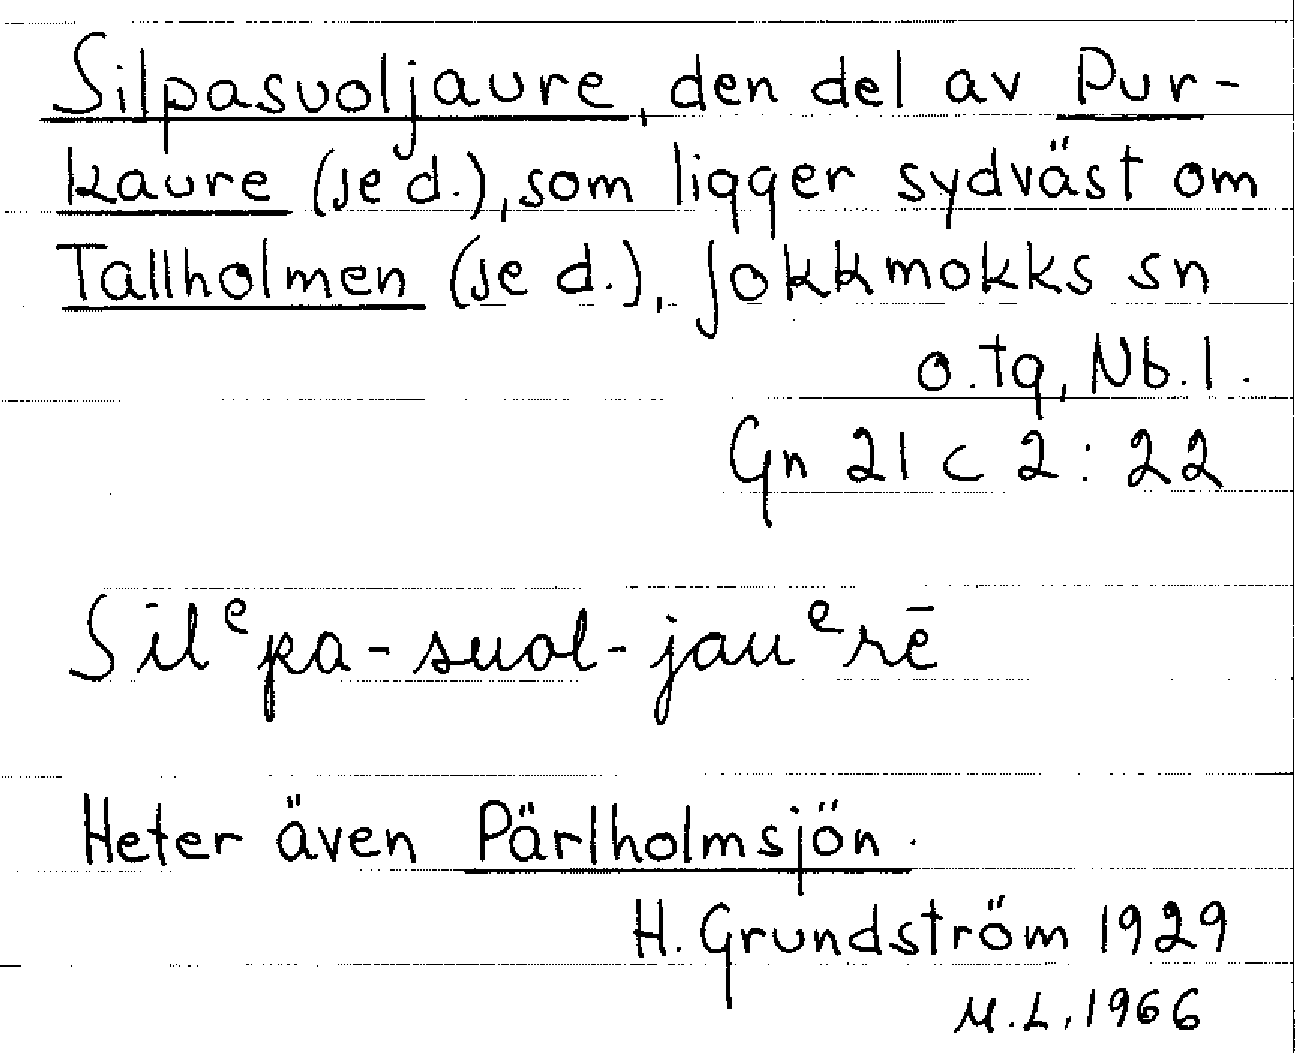 Silpasuoljaure, den del av Pur-
kaure (se d.), som ligger sydväst om
Tallholmen (se d.), Jokkmokks sn
o. tg, Nb. l.
Gn 21 c 2 : 22
Silᵉpa-suol-jauᵉrē
Heter även Pärlholmsjön.
H. Grundström 1929
M.L. 1966